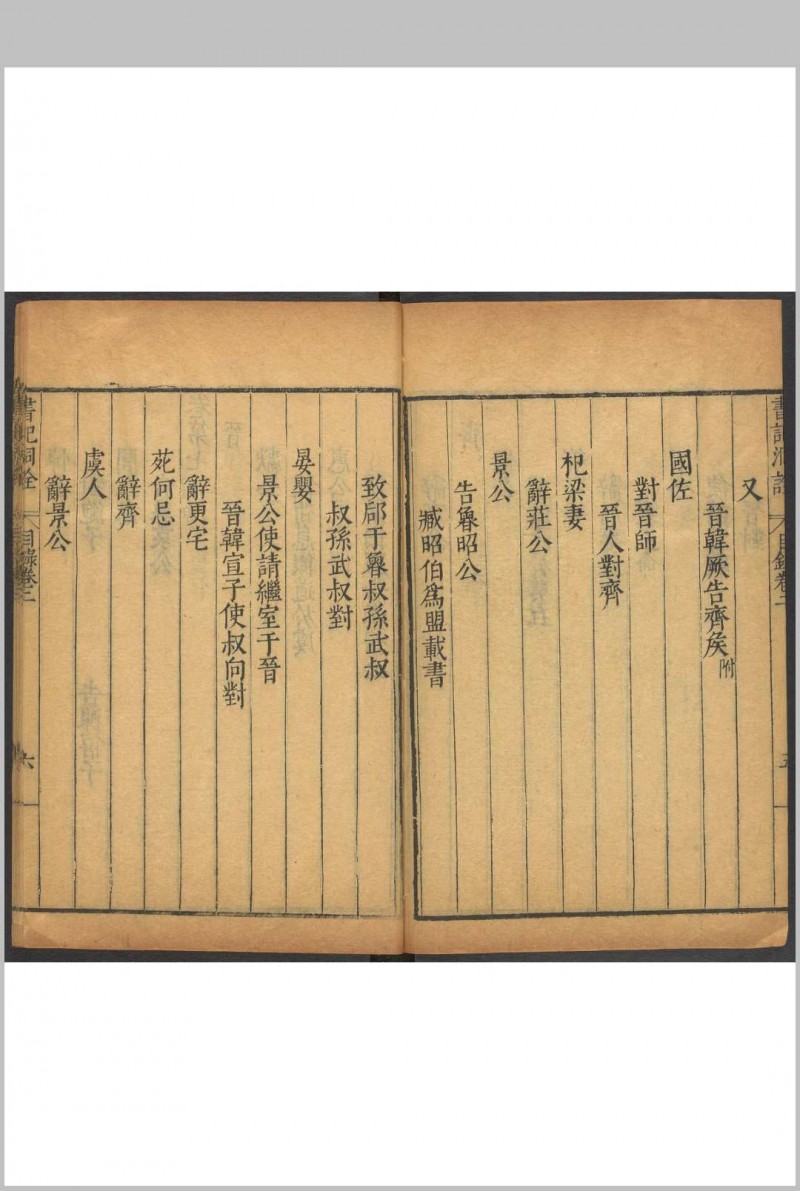 又
晉韓厥告齊矦附
國佐
對晉師
晉人對齊
杞梁妻
辭莊公
景公
告魯昭公
臧昭伯爲盟載書
致郈于魯叔孫武叔
叔孫武叔對
晏嬰
景公使請繼室于晉
晉韓宣子使叔向對
辭更宅
苑何忌
辭齊
虞人
辭景公
書記洞詮
目錄卷二
六